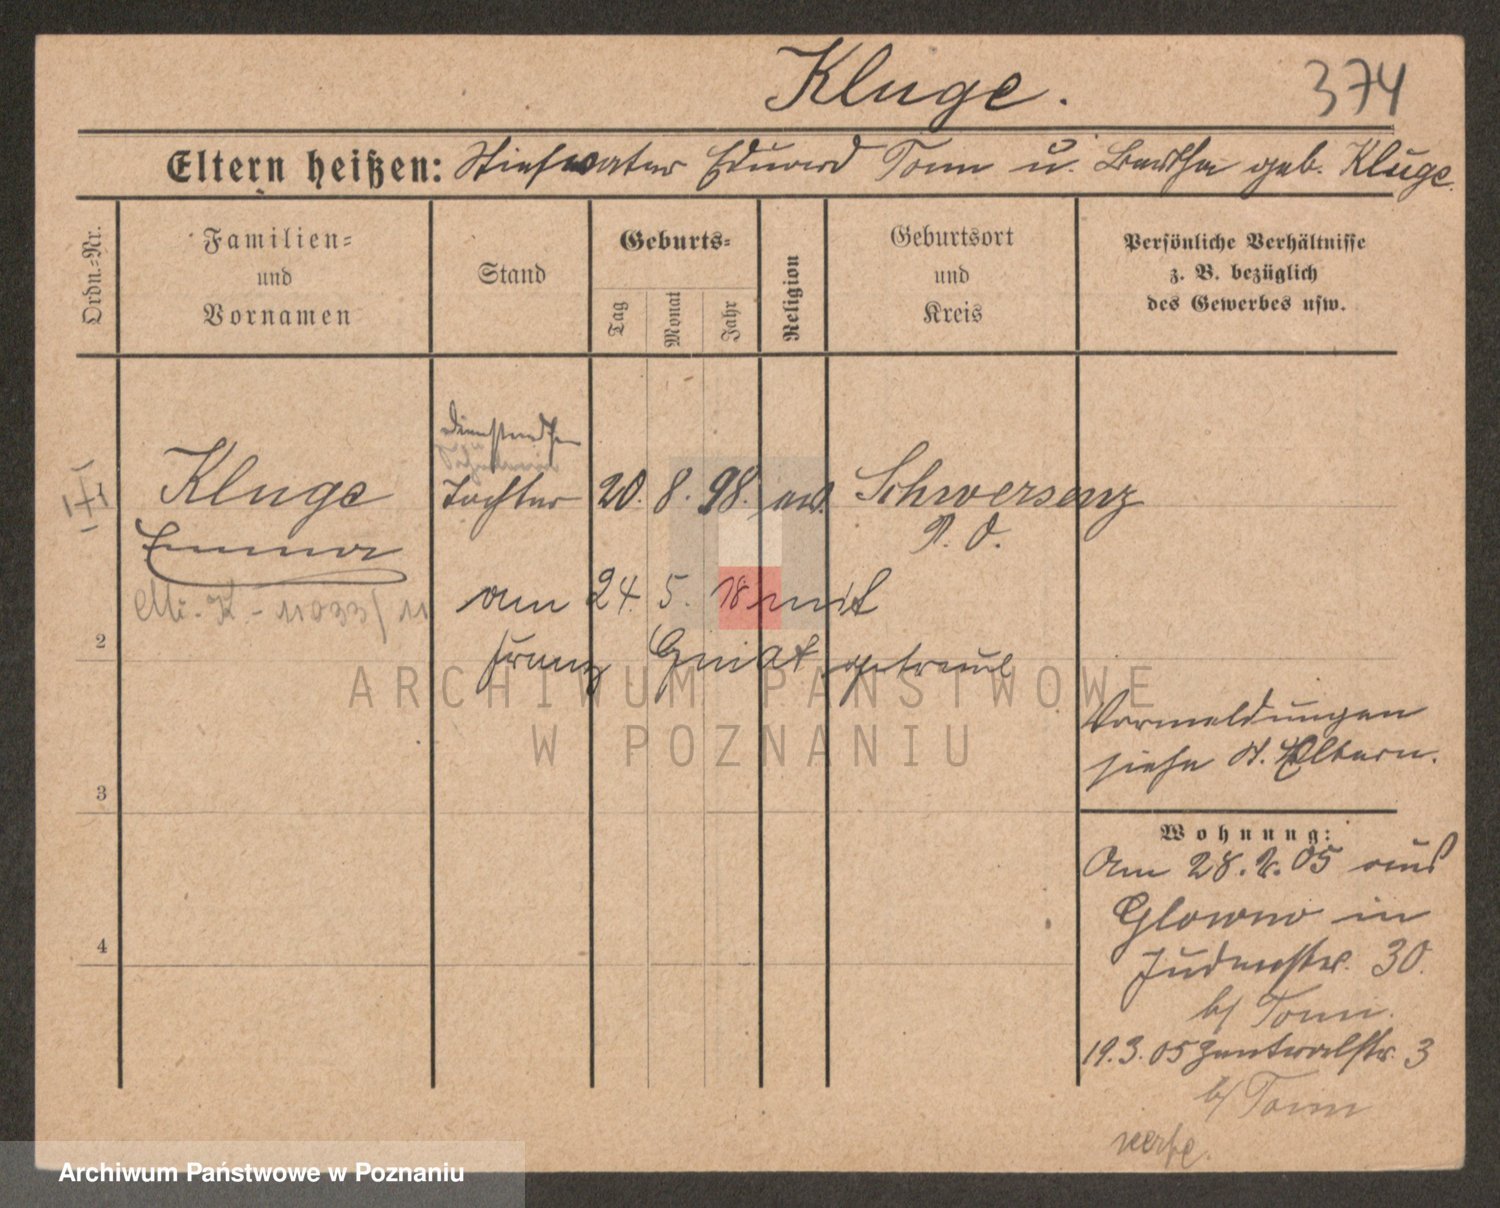 Kluge.
374
Eltern heißen: Stiefvater Eduard Tonn u. Bertha geb. Kluge.
Ordn.-Nr.
Familien-
und
Vornamen
Stand
Geburts-
Tag
Monat
Jahr
Religion
Geburtsort
und
Kreis
Persönliche Verhältnisse
z. B. bezüglich
des Gewerbes usw.
Kluge
Tochter
20. 8. 98. ev.
Schwersenz
P. O.
Emma
am 24. 5. 18 mit
2
Franz Gmiat getraut
Vormeldungen
siehe d. Eltern.
3
Wohnung:
Am 28. 2. 05 aus
Glowno in
4
Judenstr. 30.
b/ Tonn.
19. 3. 05 Zentralstr. 3
b/ Tonn
ARCHIWUM PAŃSTWOWE
W POZNANIU
Archiwum Państwowe w Poznaniu